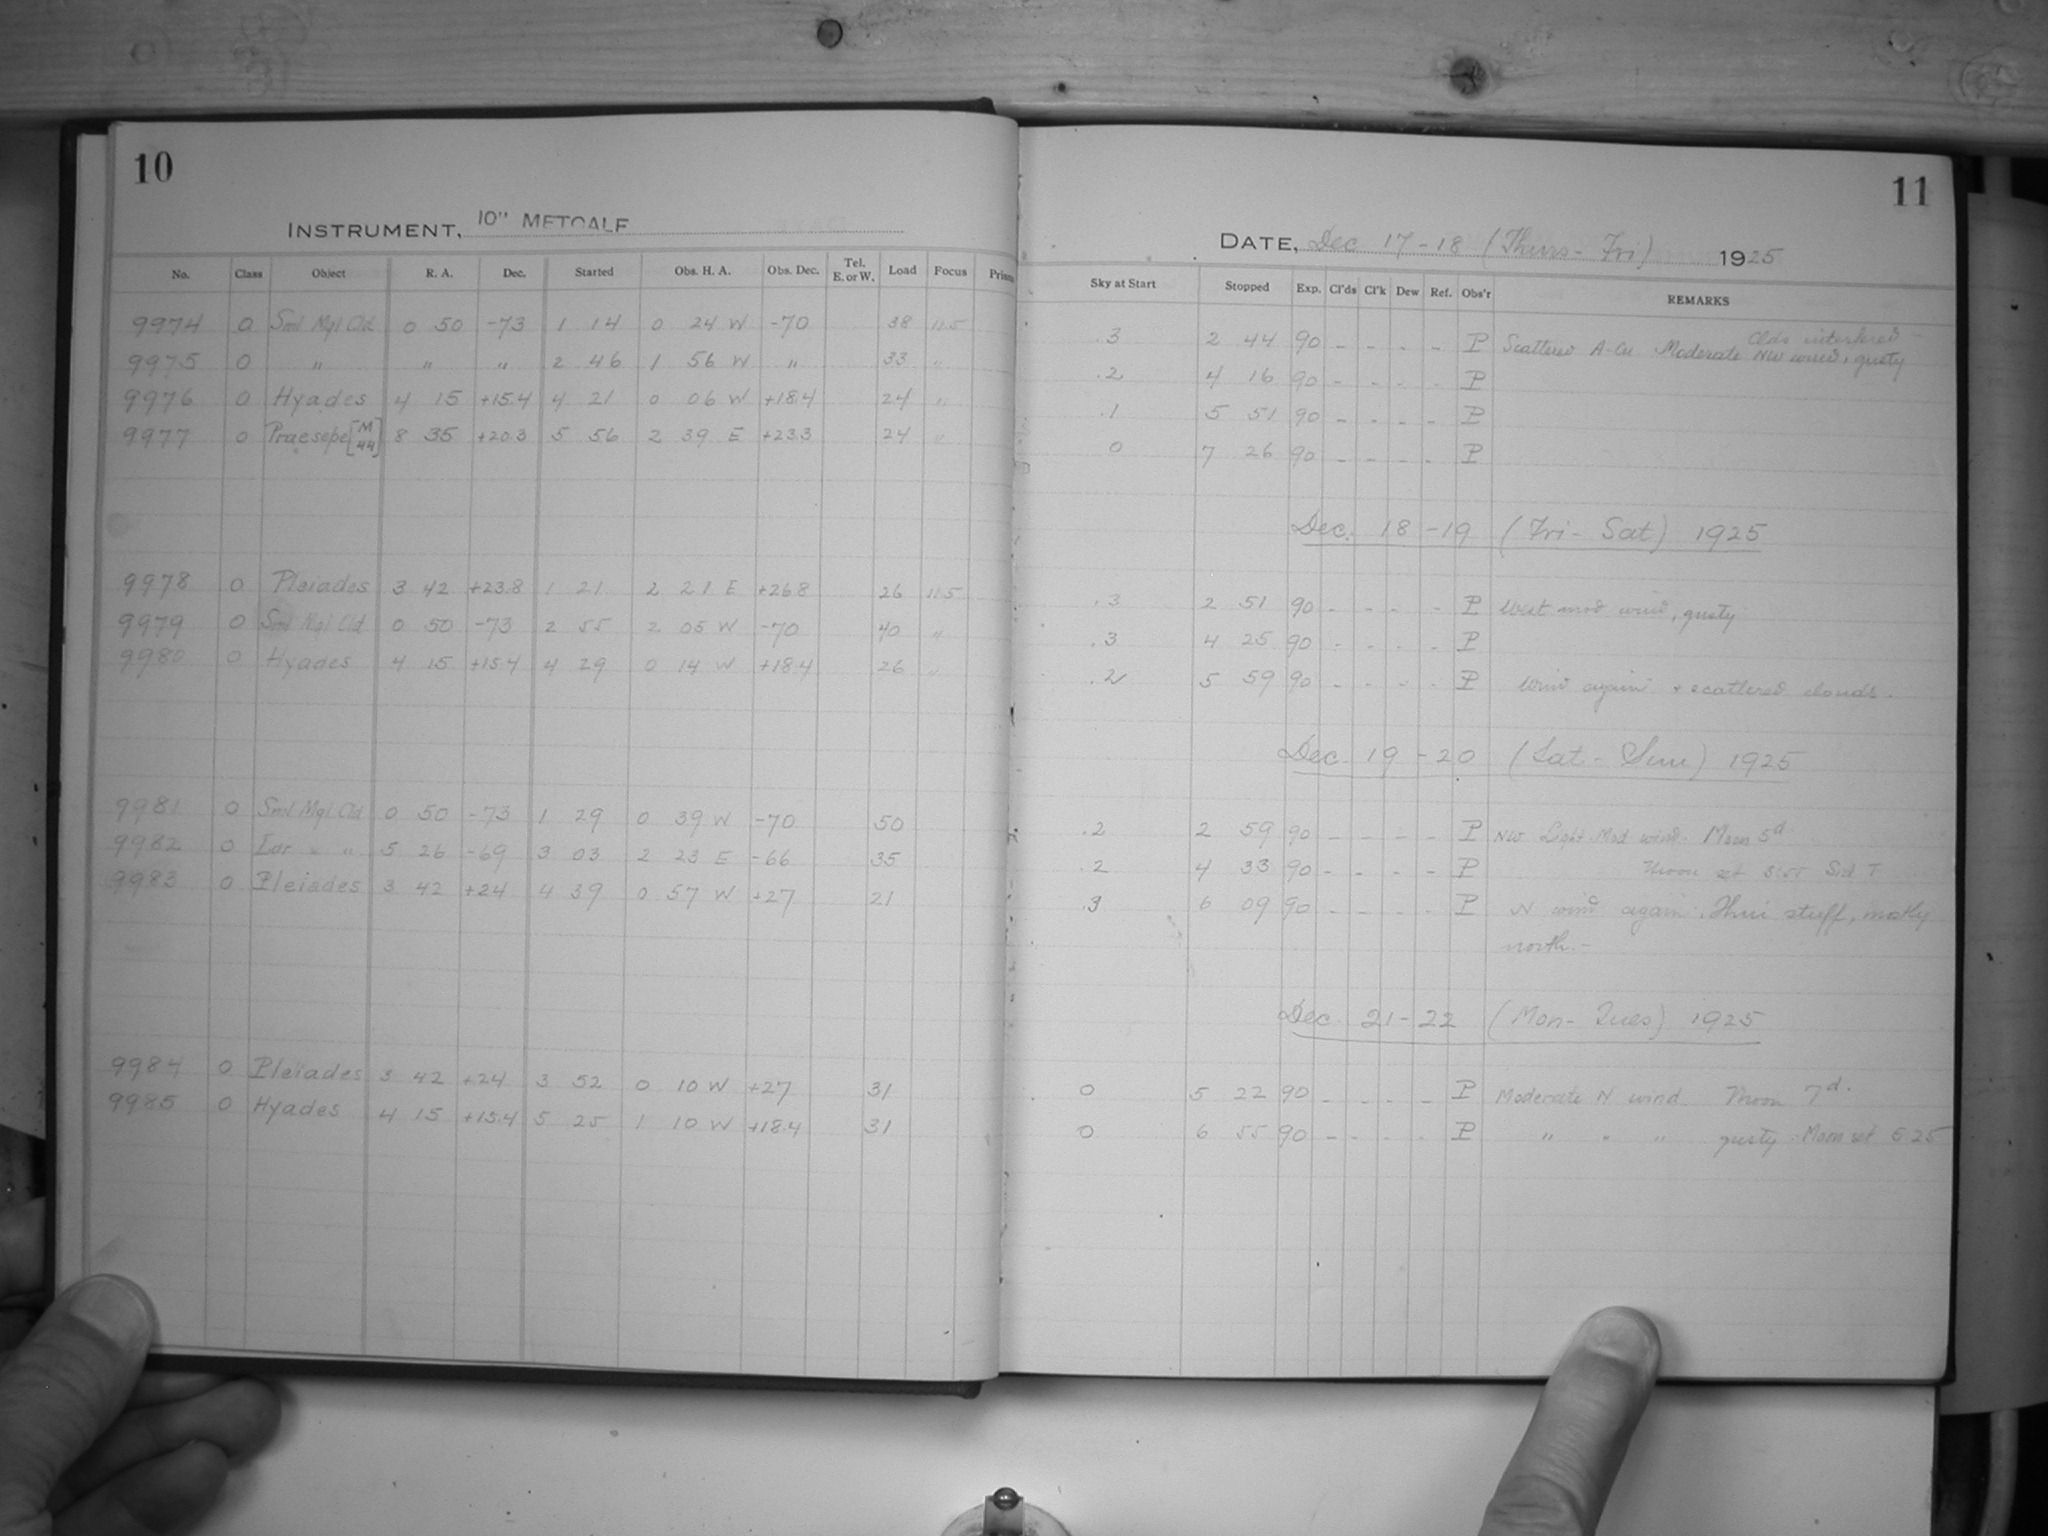 10
INSTRUMENT, 10" METCALF
No. Class Object R. A. Dec. Started Obs. H. A. Obs. Dec. Tel. E. or W. Load Focus Prism
9974 0 Sml Mgl Cld 0 50 -73 1 14 0 24 W -70 38 11.5
9975 0 " " " 2 46 1 56 W " 33 "
9976 0 Hyades 4 15 +15.4 4 21 0 06 W +18.4 24 "
9977 0 Praesepe [M 44] 8 35 +20.3 5 56 2 39 E +23.3 24 "
9978 0 Pleiades 3 42 +23.8 1 21 2 21 E +26.8 26 11.5
9979 0 Sml Mgl Cld 0 50 -73 2 55 2 05 W -70 40 "
9980 0 Hyades 4 15 +15.4 4 29 0 14 W +18.4 26 "
9981 0 Sml Mgl Cld 0 50 -73 1 29 0 39 W -70 50
9982 0 Lar " " 5 26 -69 3 03 2 23 E -66 35
9983 0 Pleiades 3 42 +24 4 39 0 57 W +27 21
9984 0 Pleiades 3 42 +24 3 52 0 10 W +27 31
9985 0 Hyades 4 15 +15.4 5 25 1 10 W +18.4 31
11
DATE, Dec 17-18 (Thurs-Fri) 1925
Sky at Start Stopped Exp. Cl'ds Cl'k Dew Ref. Obs'r REMARKS
Clds interfered
.3 2 44 90 - - - - P Scattered A-Cu Moderate NW wind, gusty
.2 4 16 90 - - - - P
.1 5 51 90 - - - - P
0 7 26 90 - - - - P
Dec. 18-19 (Fri-Sat) 1925
.3 2 51 90 - - - - P West mod wind, gusty
.3 4 25 90 - - - - P
.2 5 59 90 - - - - P Wind again + scattered clouds.
Dec. 19-20 (Sat-Sun) 1925
.2 2 59 90 - - - - P NW Light-Mod wind. Moon 5d
.2 4 33 90 - - - - P Moon set Sid T
.3 6 09 90 - - - - P N wind again. Thin stuff, mostly
north.-
Dec. 21-22 (Mon-Tues) 1925
0 5 22 90 - - - - P Moderate N wind Moon 7d.
0 6 55 90 - - - - P " " " gusty. Moon set 5 25